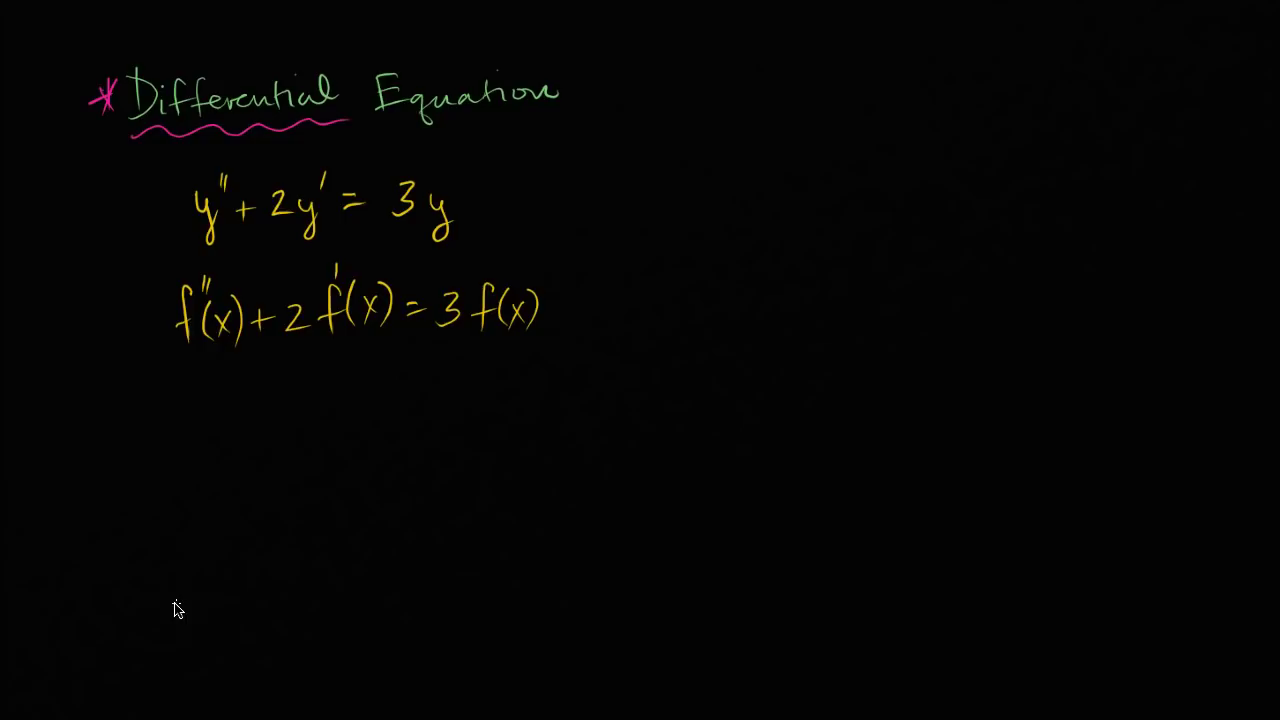 * Differential Equation
y'' + 2y' = 3y
f''(x) + 2 f'(x) = 3 f(x)